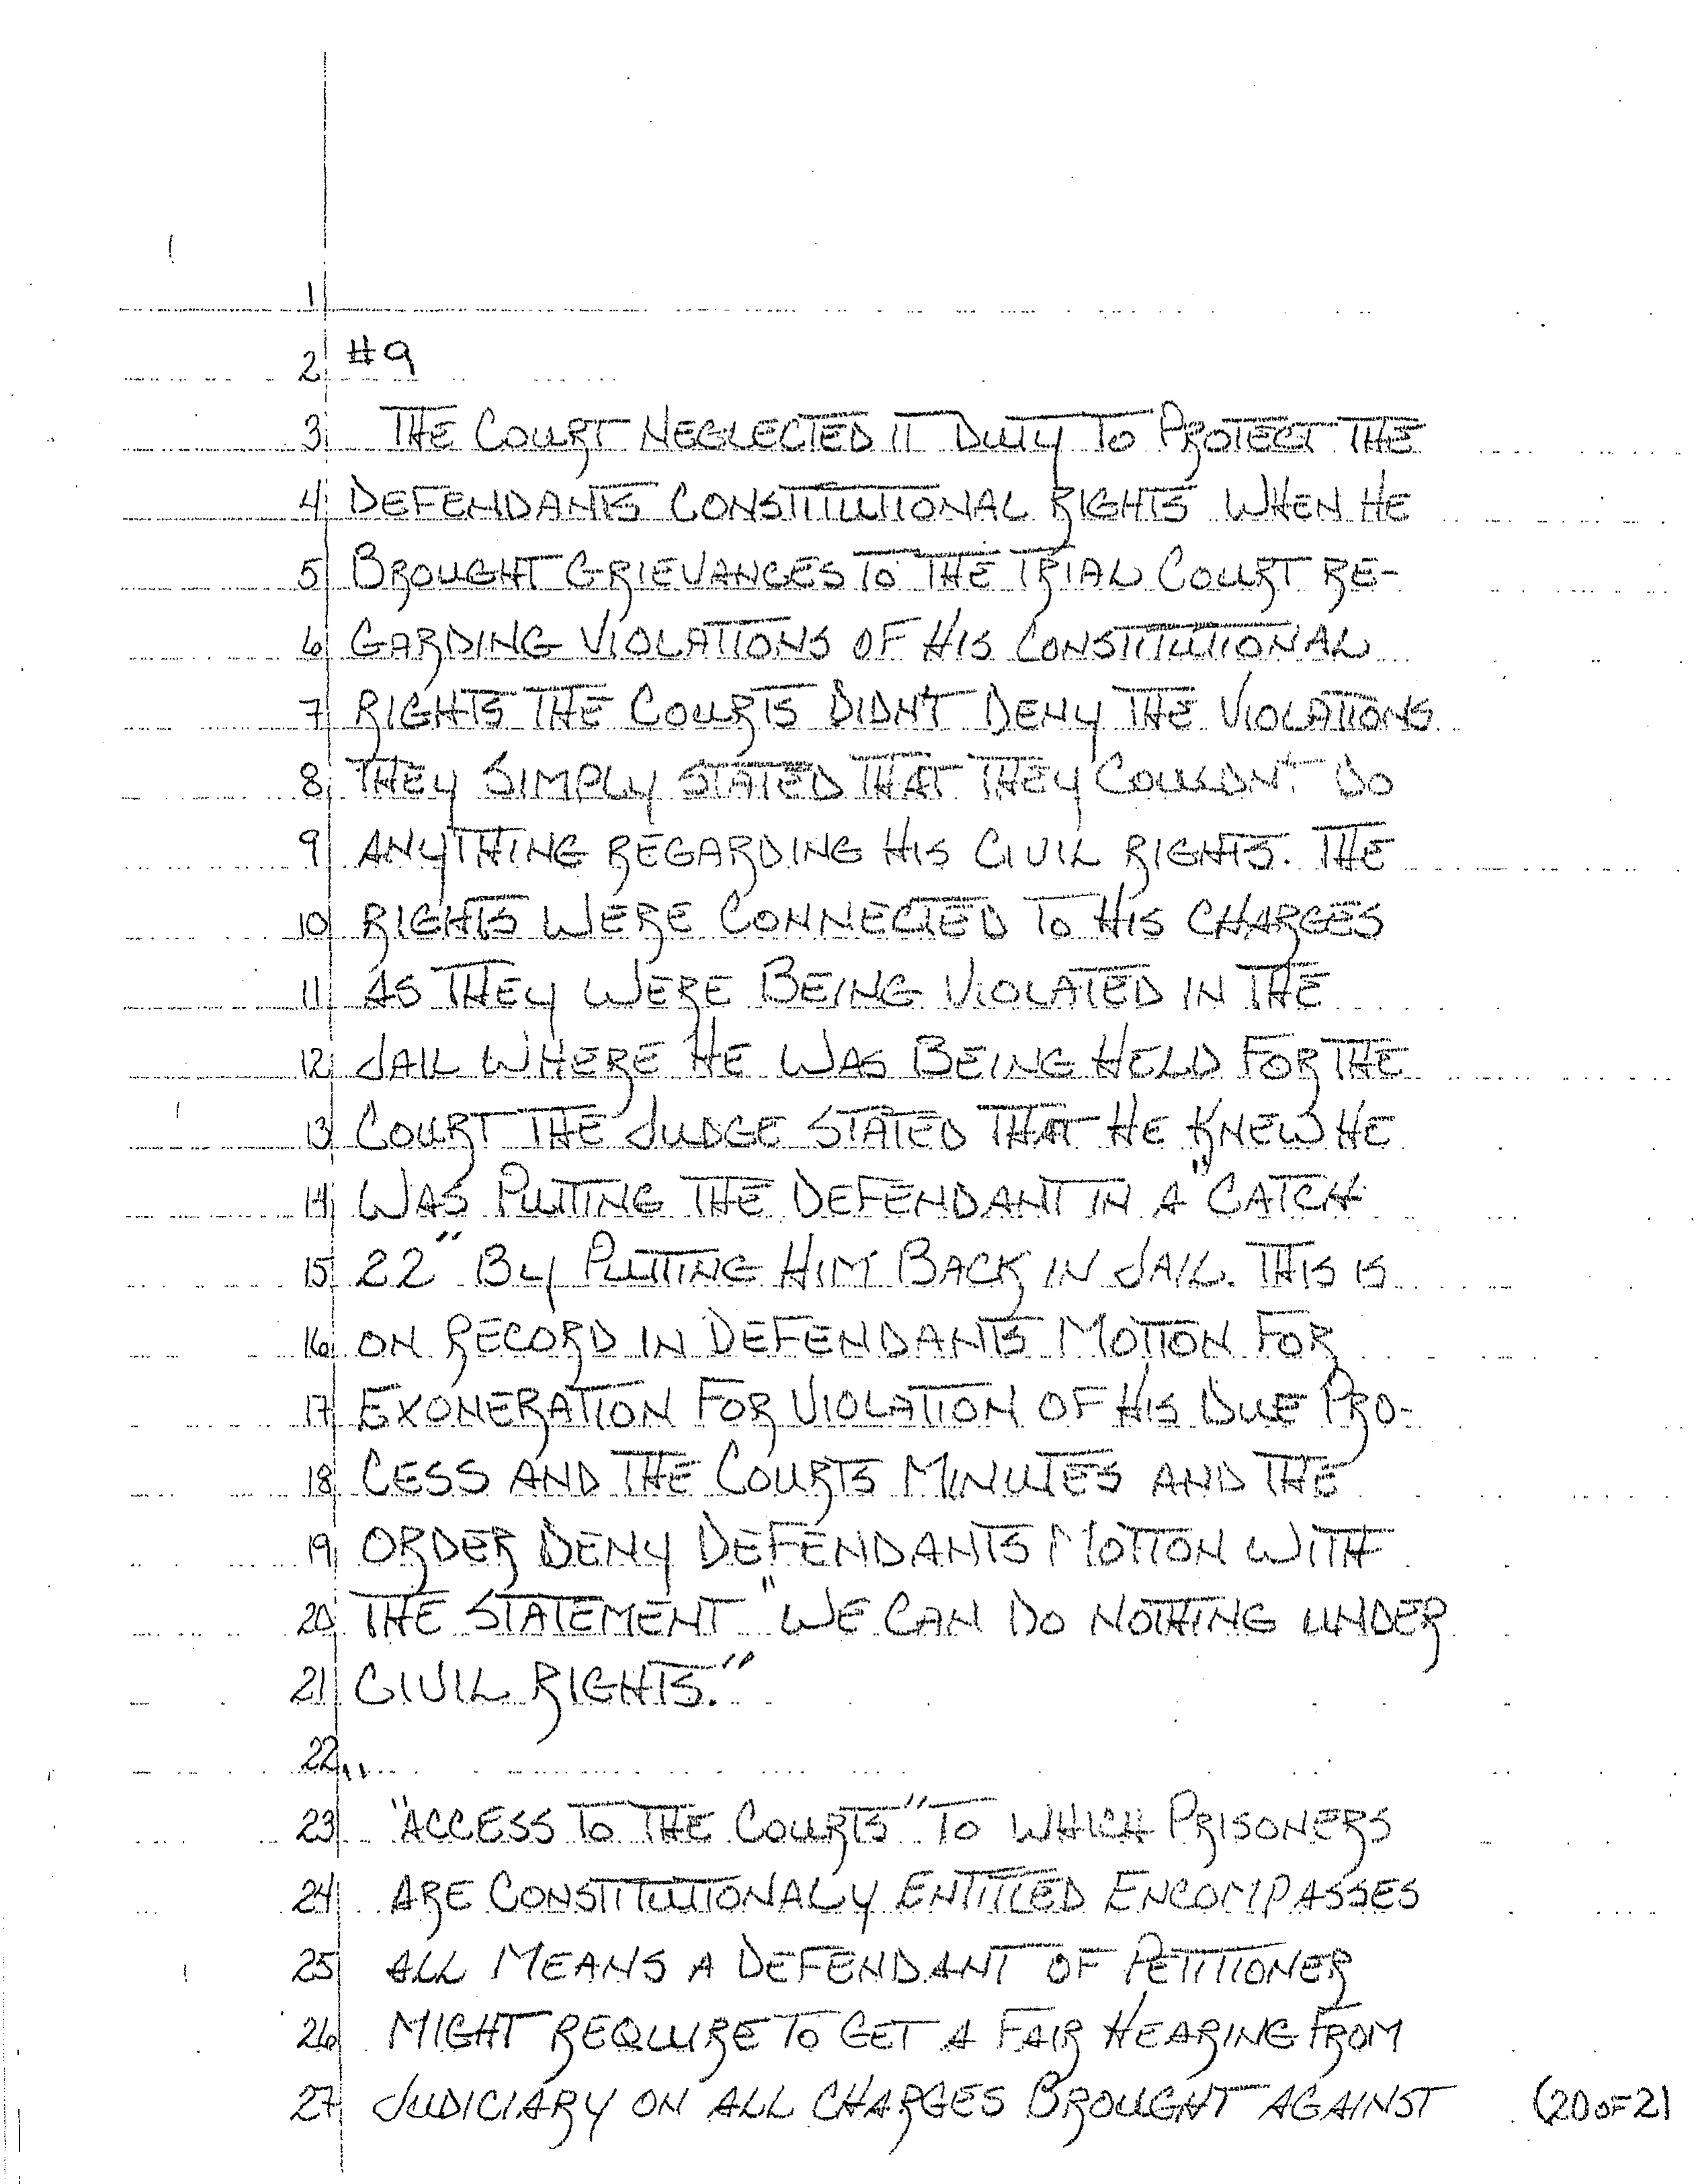 1
2 #9
3 THE COURT NEGLECTED IT DUTY TO PROTECT THE
4 DEFENDANTS CONSTITUTIONAL RIGHTS WHEN HE
5 BROUGHT GRIEVANCES TO THE TRIAL COURT RE-
6 GARDING VIOLATIONS OF HIS CONSTITUTIONAL
7 RIGHTS THE COURTS DIDN'T DENY THE VIOLATIONS
8 THEY SIMPLY STATED THAT THEY COULDN'T DO
9 ANYTHING REGARDING HIS CIVIL RIGHTS. THE
10 RIGHTS WERE CONNECTED TO HIS CHARGES
11 AS THEY WERE BEING VIOLATED IN THE
12 JAIL WHERE HE WAS BEING HELD FOR THE
13 COURT THE JUDGE STATED THAT HE KNEW HE
14 WAS PUTTING THE DEFENDANT IN A "CATCH
15 22" BY PUTTING HIM BACK IN JAIL. THIS IS
16 ON RECORD IN DEFENDANTS MOTION FOR
17 EXONERATION FOR VIOLATION OF HIS DUE PRO-
18 CESS AND THE COURTS MINUTES AND THE
19 ORDER DENY DEFENDANTS MOTION WITH
20 THE STATEMENT "WE CAN DO NOTHING UNDER
21 CIVIL RIGHTS."
22
23 "ACCESS TO THE COURTS" TO WHICH PRISONERS
24 ARE CONSTITUTIONALY ENTITLED ENCOMPASSES
25 ALL MEANS A DEFENDANT OF PETITIONER
26 MIGHT REQUIRE TO GET A FAIR HEARING FROM
27 JUDICIARY ON ALL CHARGES BROUGHT AGAINST (20 OF 21